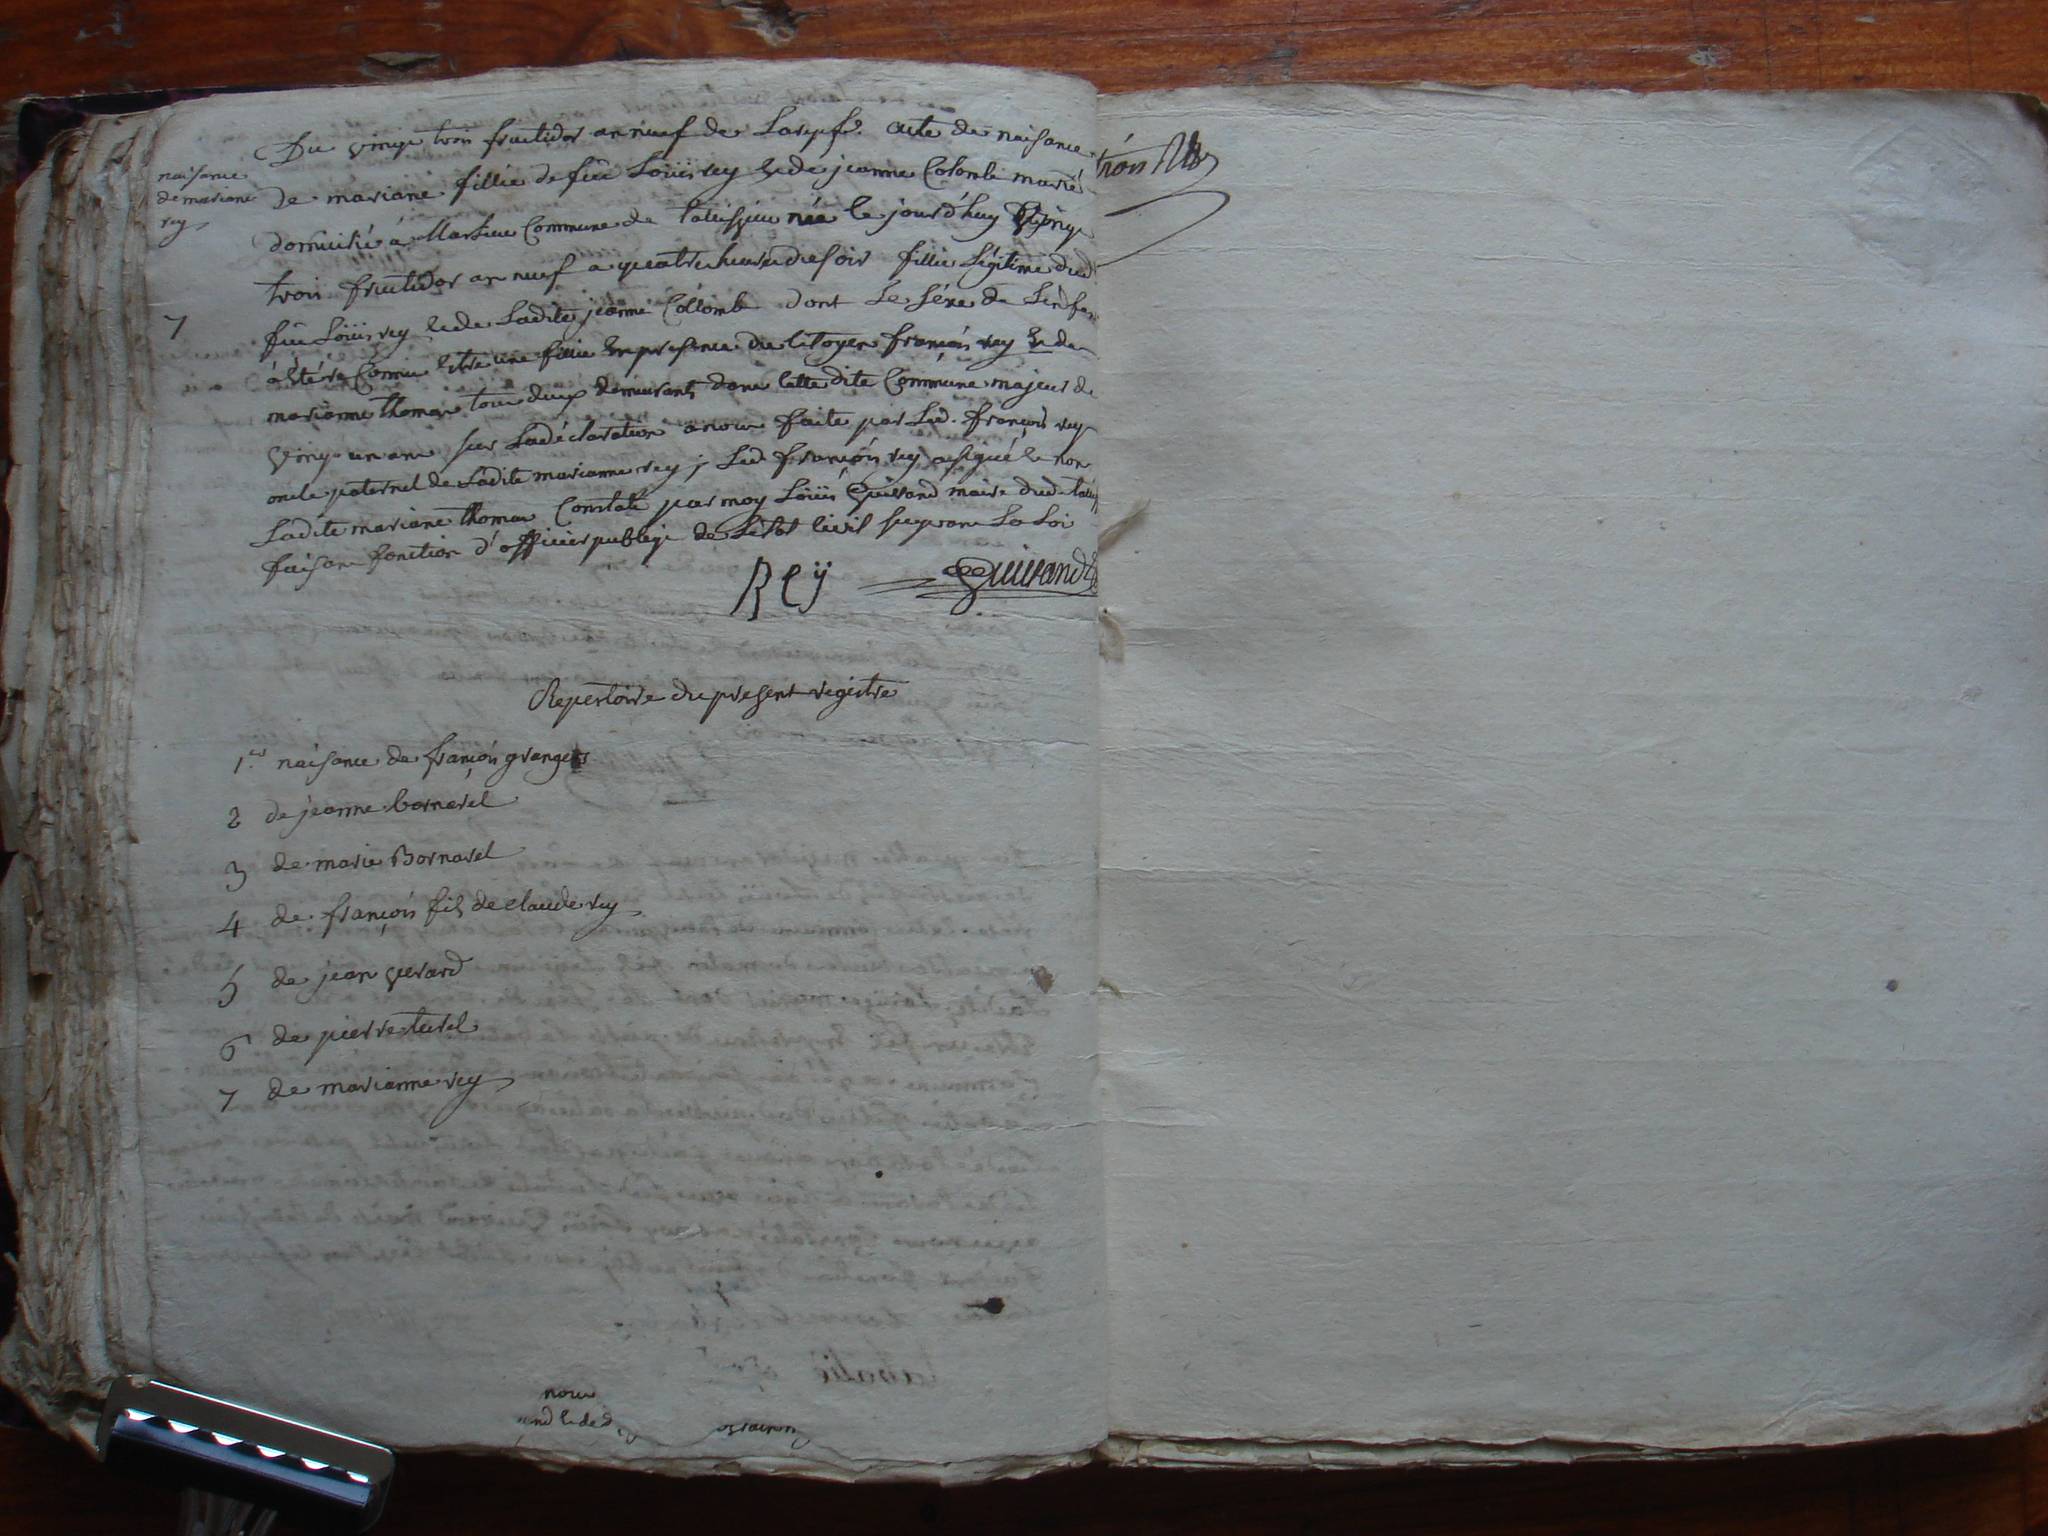 Du vingt troi fructidor an neuf de La rep fse. acte de naisance
naisance
de mariane
rey
de mariane fillie de feû Loüis rey & de jeanne Colomb marié
domicilié à Marlieu Commune de talissieu née le jourd'huy vingt
troi fructidor an neuf a quatre heure du soir fillie Légitime dud
7
feû Loüis rey & de Ladite jeanne Collomb dont Le séxe de L'enfan
à Etére Connu Etre une fillie En presence du citoyen françois rey & de
marianne thoman tous deux demeurants dans cette dite Commune majeur de
vingt un ans sur La déclaration a nous faite par Led. françois rey
oncle paternel de Ladite marianne rey ; Led françois rey a signé & non
Ladite mariane thoman Constaté par moy Loüis Guivand maire dud talis
faisan fonction d'officier publiqe de L'état civil suyvan La Loi
Reÿ Guivand
Repertoire du present regitre
1.er naisance de françois grangers
2 de jeanne bornarel
3 de marie Bornarel
4 de françois fils de claude rey
5 de jean gerard
6 de pierre turel
7 de marianne rey
nous